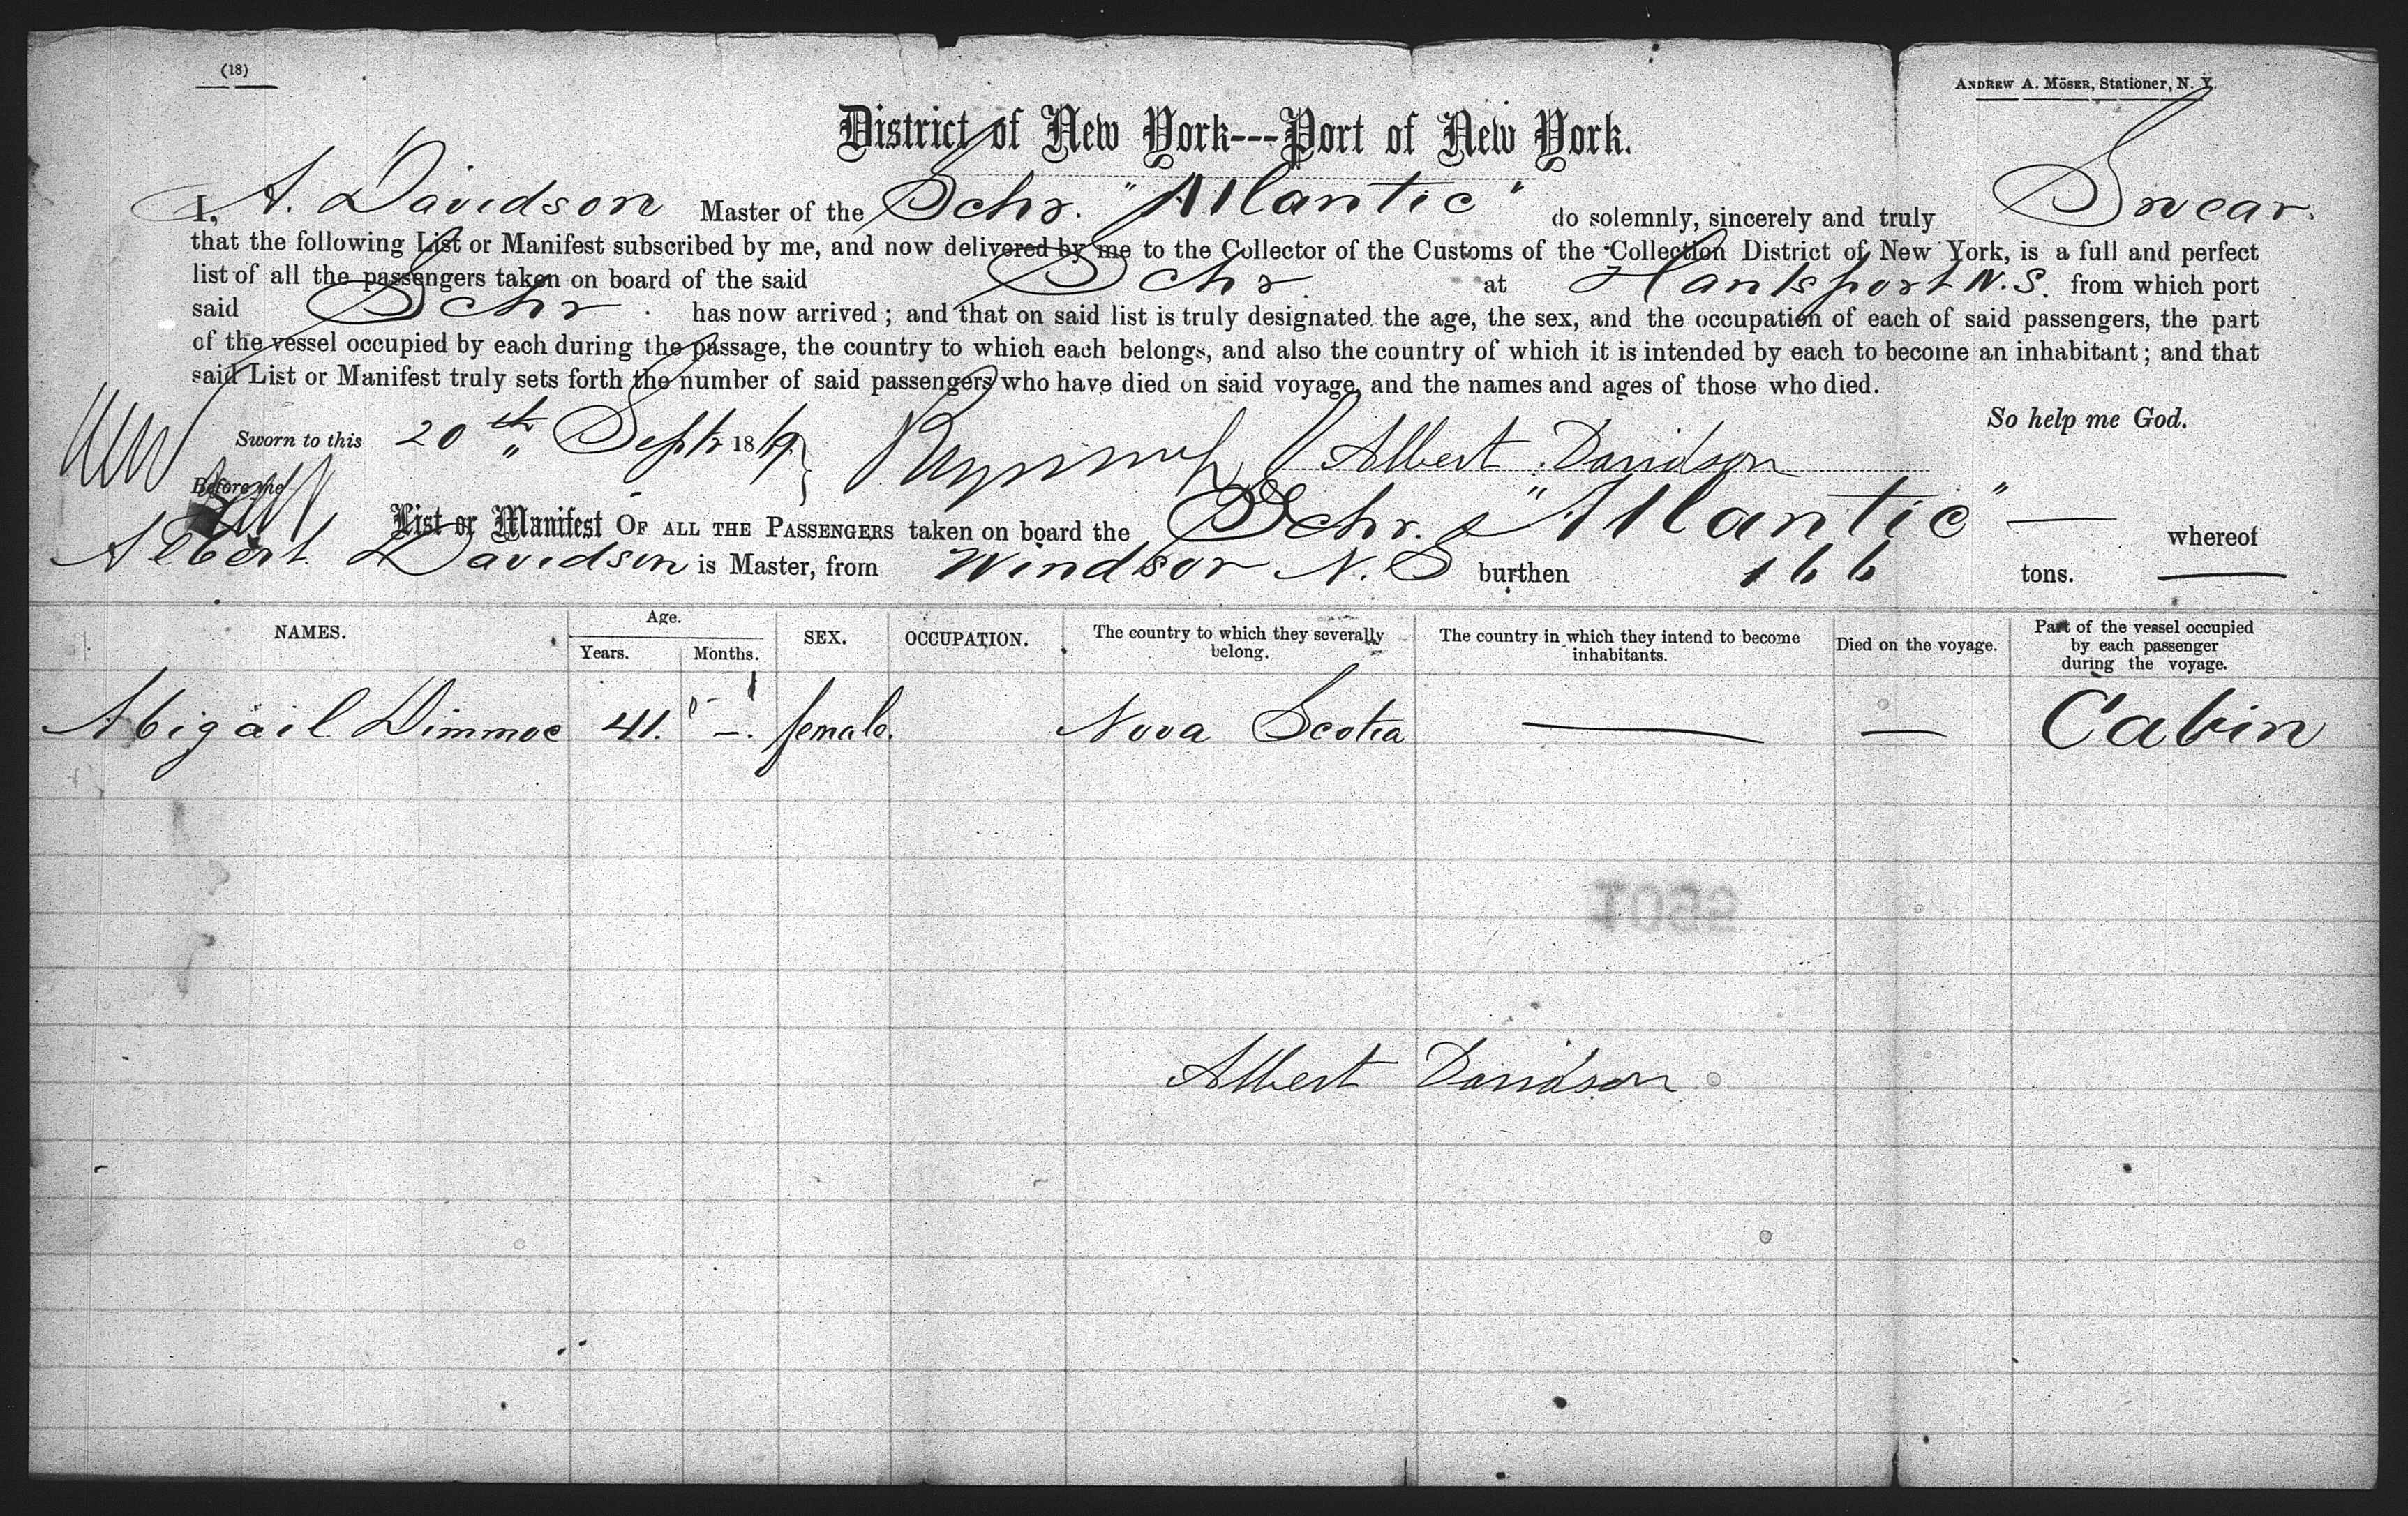 (18)
ANDREW A. MÖSER, Stationer, N. Y.
District of New York---Port of New York.
I, A. Davidson Master of the Schr. "Atlantic" do solemnly, sincerely and truly Swear.
that the following List or Manifest subscribed by me, and now delivered by me to the Collector of the Customs of the Collection District of New York, is a full and perfect
list of all the passengers taken on board of the said Schr at Hantsport N.S. from which port
said Schr. has now arrived; and that on said list is truly designated the age, the sex, and the occupation of each of said passengers, the part
of the vessel occupied by each during the passage, the country to which each belongs, and also the country of which it is intended by each to become an inhabitant; and that
said List or Manifest truly sets forth the number of said passengers who have died on said voyage, and the names and ages of those who died.
So help me God.
Sworn to this 20th Sept 18 Albert Davidson
Before me
List or Manifest OF ALL THE PASSENGERS taken on board the Schr. "Atlantic" — whereof
Albert Davidson is Master, from Windsor N. S burthen 166 tons. —
NAMES. Age. Years. Months. SEX. OCCUPATION. The country to which they severally belong. The country in which they intend to become inhabitants. Died on the voyage. Part of the vessel occupied by each passenger during the voyage.
Abigail Dimmoc 41. —. female. Nova Scotia — — Cabin
Albert Davidson